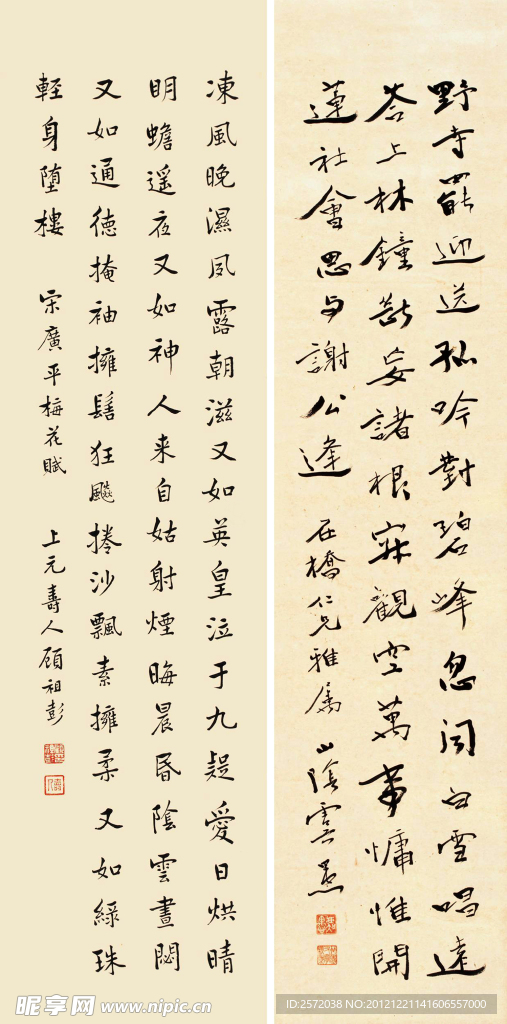 野寺罷迎送孤吟對碧峰忽聞白雪唱遠
答上林鐘斷妄諸根寂觀空萬事慵惟開
蓮社會思与謝公逢
石橋仁兄雅屬 山陰
凍風晚濕夙露朝滋又如英皇泣于九疑愛日烘晴
明蟾遥夜又如神人来自姑射煙晦晨昏陰雲晝閟
又如通德掩袖擁髻狂飈捲沙飄素擁柔又如綠珠
輕身墮樓 宋廣平梅花賦 上元壽人顧祖彭
昵享网 www.nipic.cn
ID:2572038 NO:20121221141606557000